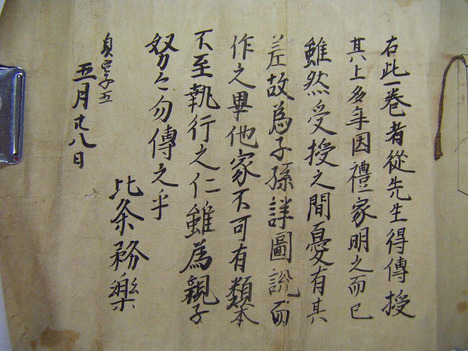 右此一巻者從先生得傳授
其上多年因禮家明之而已
雖然受授之間憂有其
差故為子孫詳圖説而
作之畢他家不可有類本
不至執行之仁雖為親子
努〻勿傳之乎
比条務樂
貞享五
五月廿八日